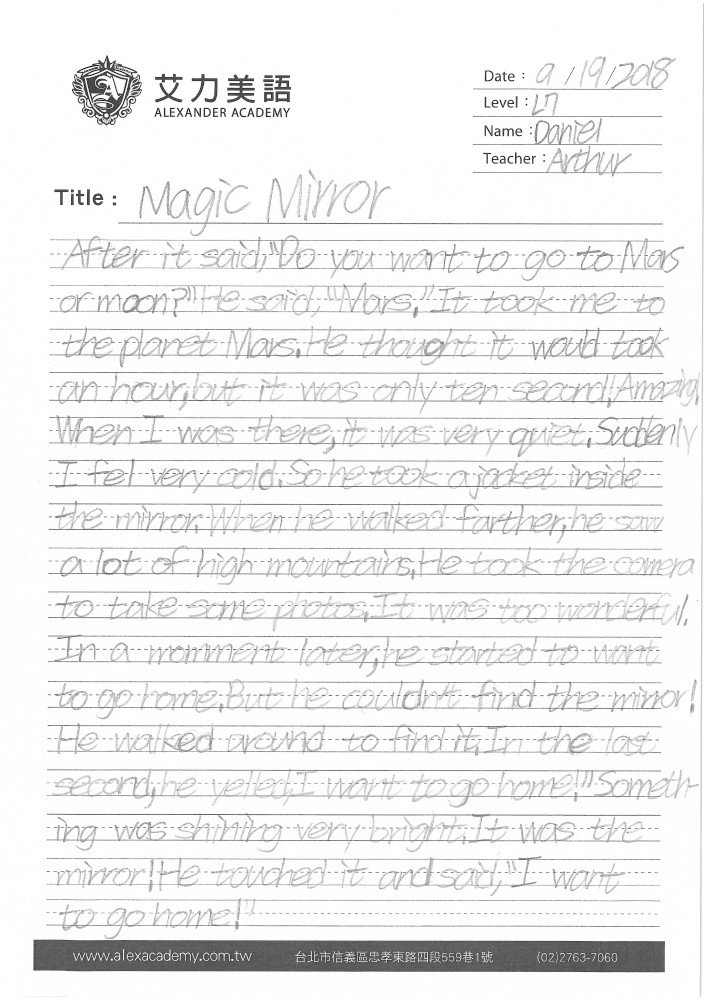 艾力美語
ALEXANDER ACADEMY
Date : 9/19/2018
Level : L7
Name : Daniel
Teacher : Arthur
Title : Magic Mirror
After it said, "Do you want to go to Mars
or moon?" He said, "Mars." It took me to
the planet Mars. He thought it would took
an hour, but it was only ten second! Amazing.
When I was there, it was very quiet. Suddenly
I fel very cold. So he took a jacket inside
the mirror. When he walked farther, he saw
a lot of high mountains. He took the camera
to take some photos. It was too wonderful.
In a momment later, he started to want
to go home. But he couldn't find the mirror!
He walked around to find it. In the last
second, he yelled, I want to go home!" Someth-
ing was shining very bright. It was the
mirror! He touched it and said, "I want
to go home!"
www.alexacademy.com.tw 台北市信義區忠孝東路四段559巷1號 (02)2763-7060